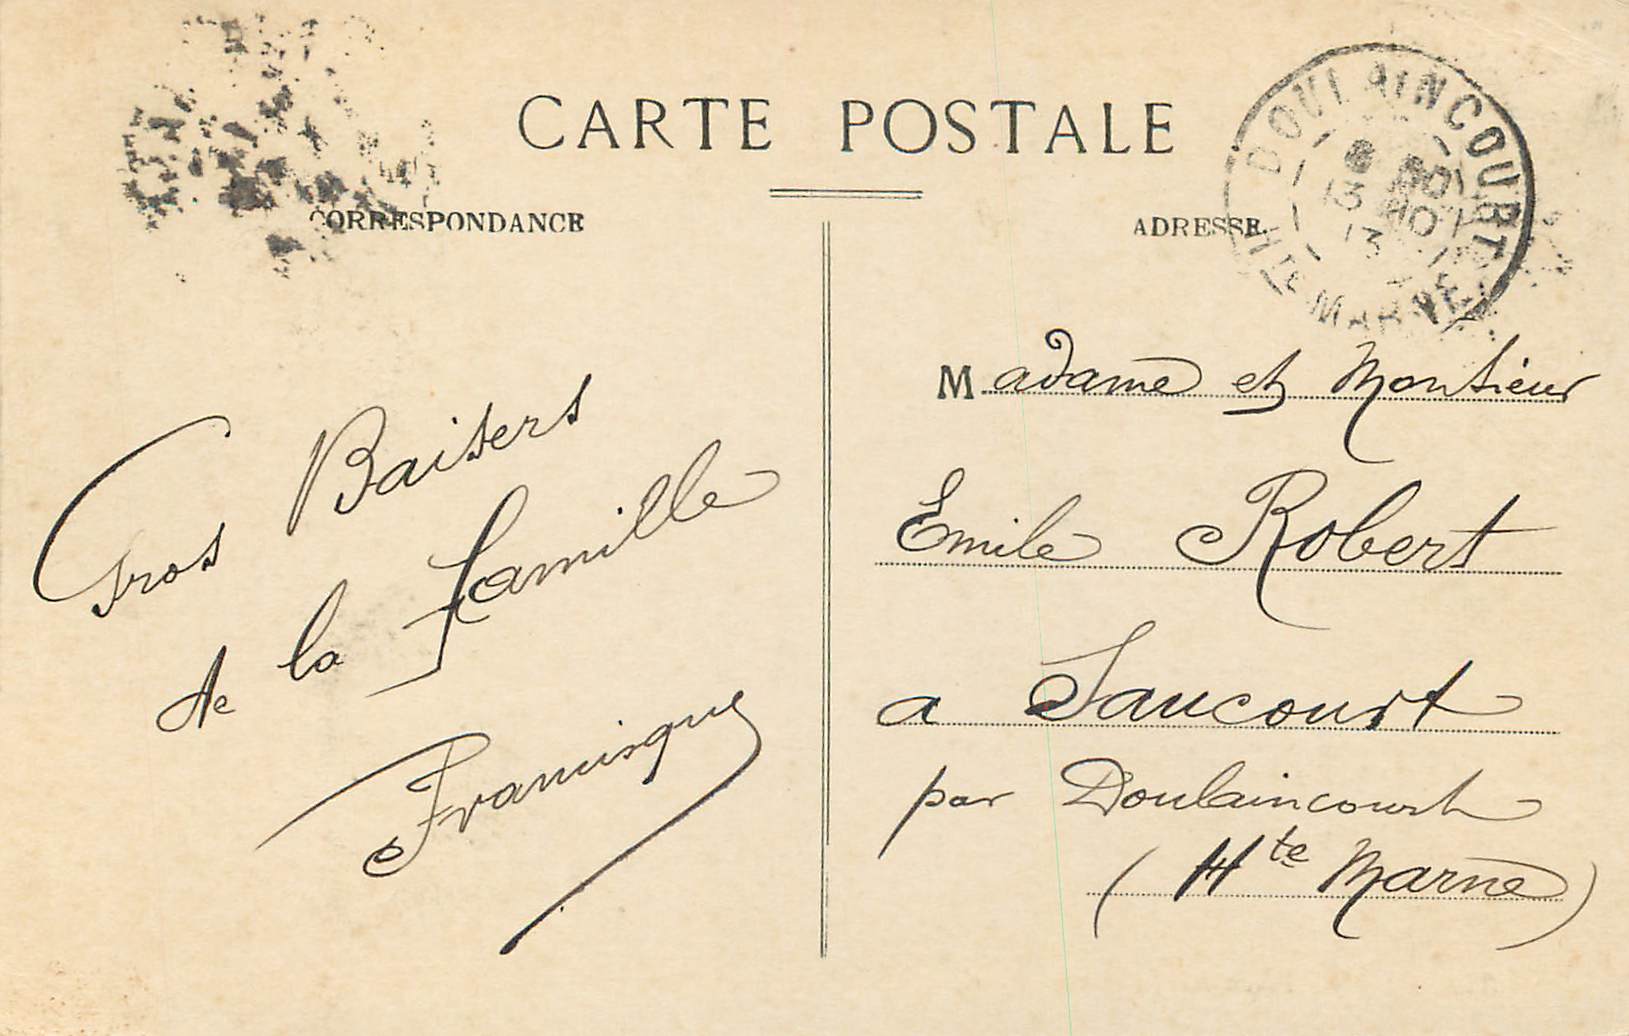 CARTE POSTALE
CORRESPONDANCE
ADRESSE
DOULAINCOURT
13
13
HTE MARNE
Gros Baisers
de la Famille
Francisque
Madame et Monsieur
Emile Robert
a Saucourt
par Doulaincourt
(Hte Marne)